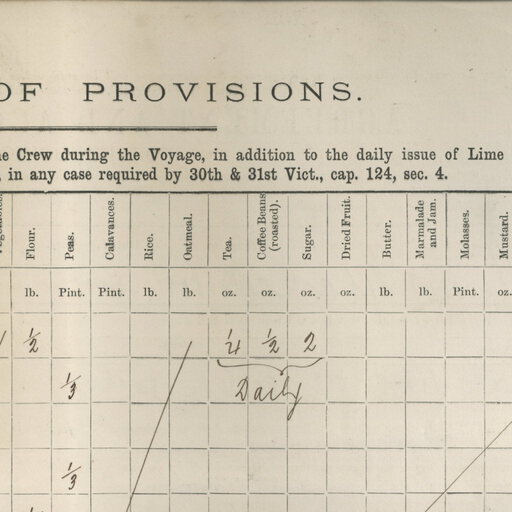 OF PROVISIONS.
Crew during the Voyage, in addition to the daily issue of Lime
, in any case required by 30th & 31st Vict., cap. 124, sec. 4.
Flour. Peas. Calavances. Rice. Oatmeal. Tea. Coffee Beans (roasted). Sugar. Dried Fruit. Butter. Marmalade and Jam. Molasses. Mustard.
lb. Pint. Pint. lb. lb. oz. oz. oz. oz. lb. lb. Pint. oz.
½ ¼ ½ 2
⅓ Daily
⅓